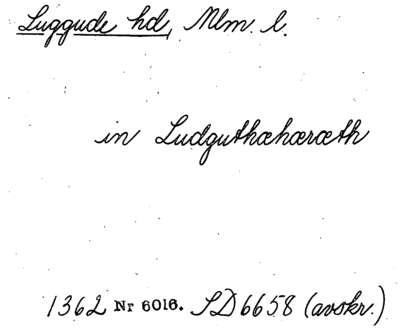 Luggude hd, Mlm. l.
in Ludguthæhæræth
1362 Nr 6016. SD 6658 (avskr.)